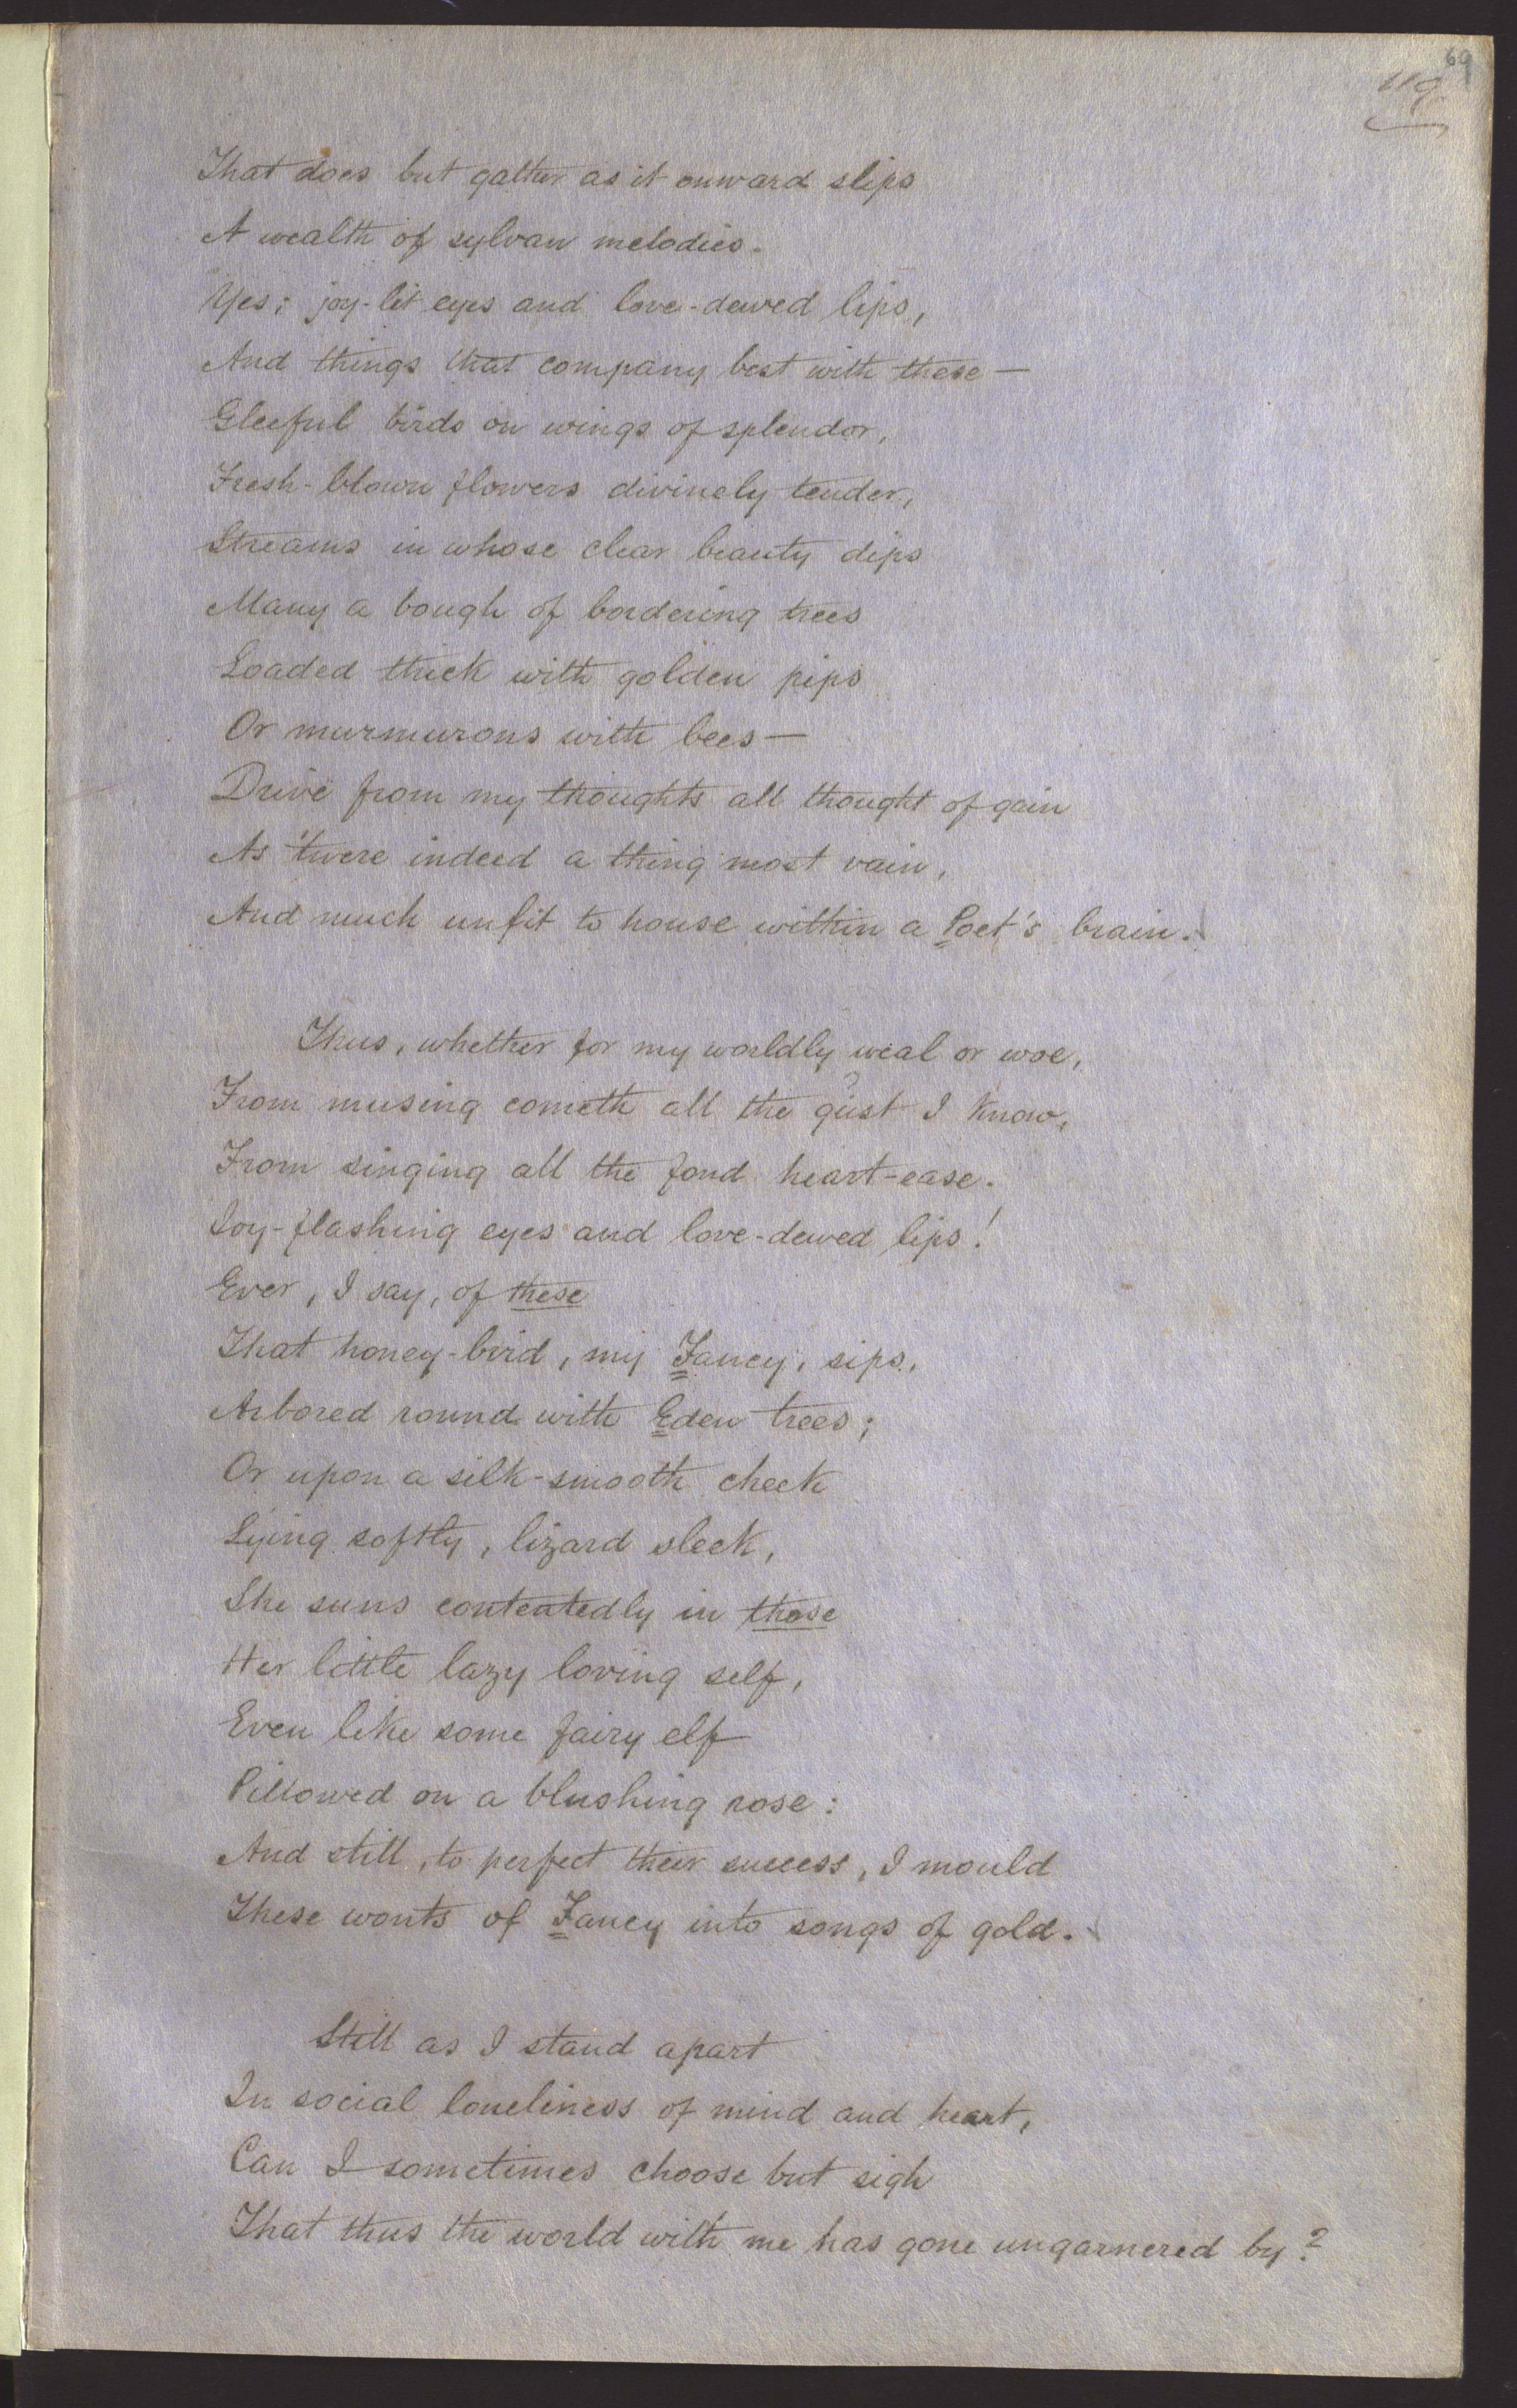 69
119
That does but gather as it onward slips
A wealth of sylvan melodies.
Yes; joy-lit eyes and love-dewed lips,
And things that company best with these—
Gleeful birds on wings of splendor,
Fresh-blown flowers divinely tender,
Streams in whose clear beauty dips
Many a bough of bordering trees
Loaded thick with golden pips
Or murmurous with bees—
Drive from my thoughts all thought of gain
As 'twere indeed a thing most vain,
And much unfit to house within a Poet's brain.
Thus, whether for my worldly weal or woe,
From musing cometh all the gust I know,
From singing all the fond heart-ease.
Joy-flashing eyes and love-dewed lips!
Ever, I say, of these
That honey-bird, my Fancy, sips,
Arbored round with Eden trees;
Or upon a silk-smooth cheek
Lying softly, lizard sleek,
She suns contentedly in those
Her little lazy loving self,
Even like some fairy elf
Pillowed on a blushing rose:
And still, to perfect their success, I mould
These wonts of Fancy into songs of gold.
Still as I stand apart
In social loneliness of mind and heart,
Can I sometimes choose but sigh
That thus the world with me has gone ungarnered by?